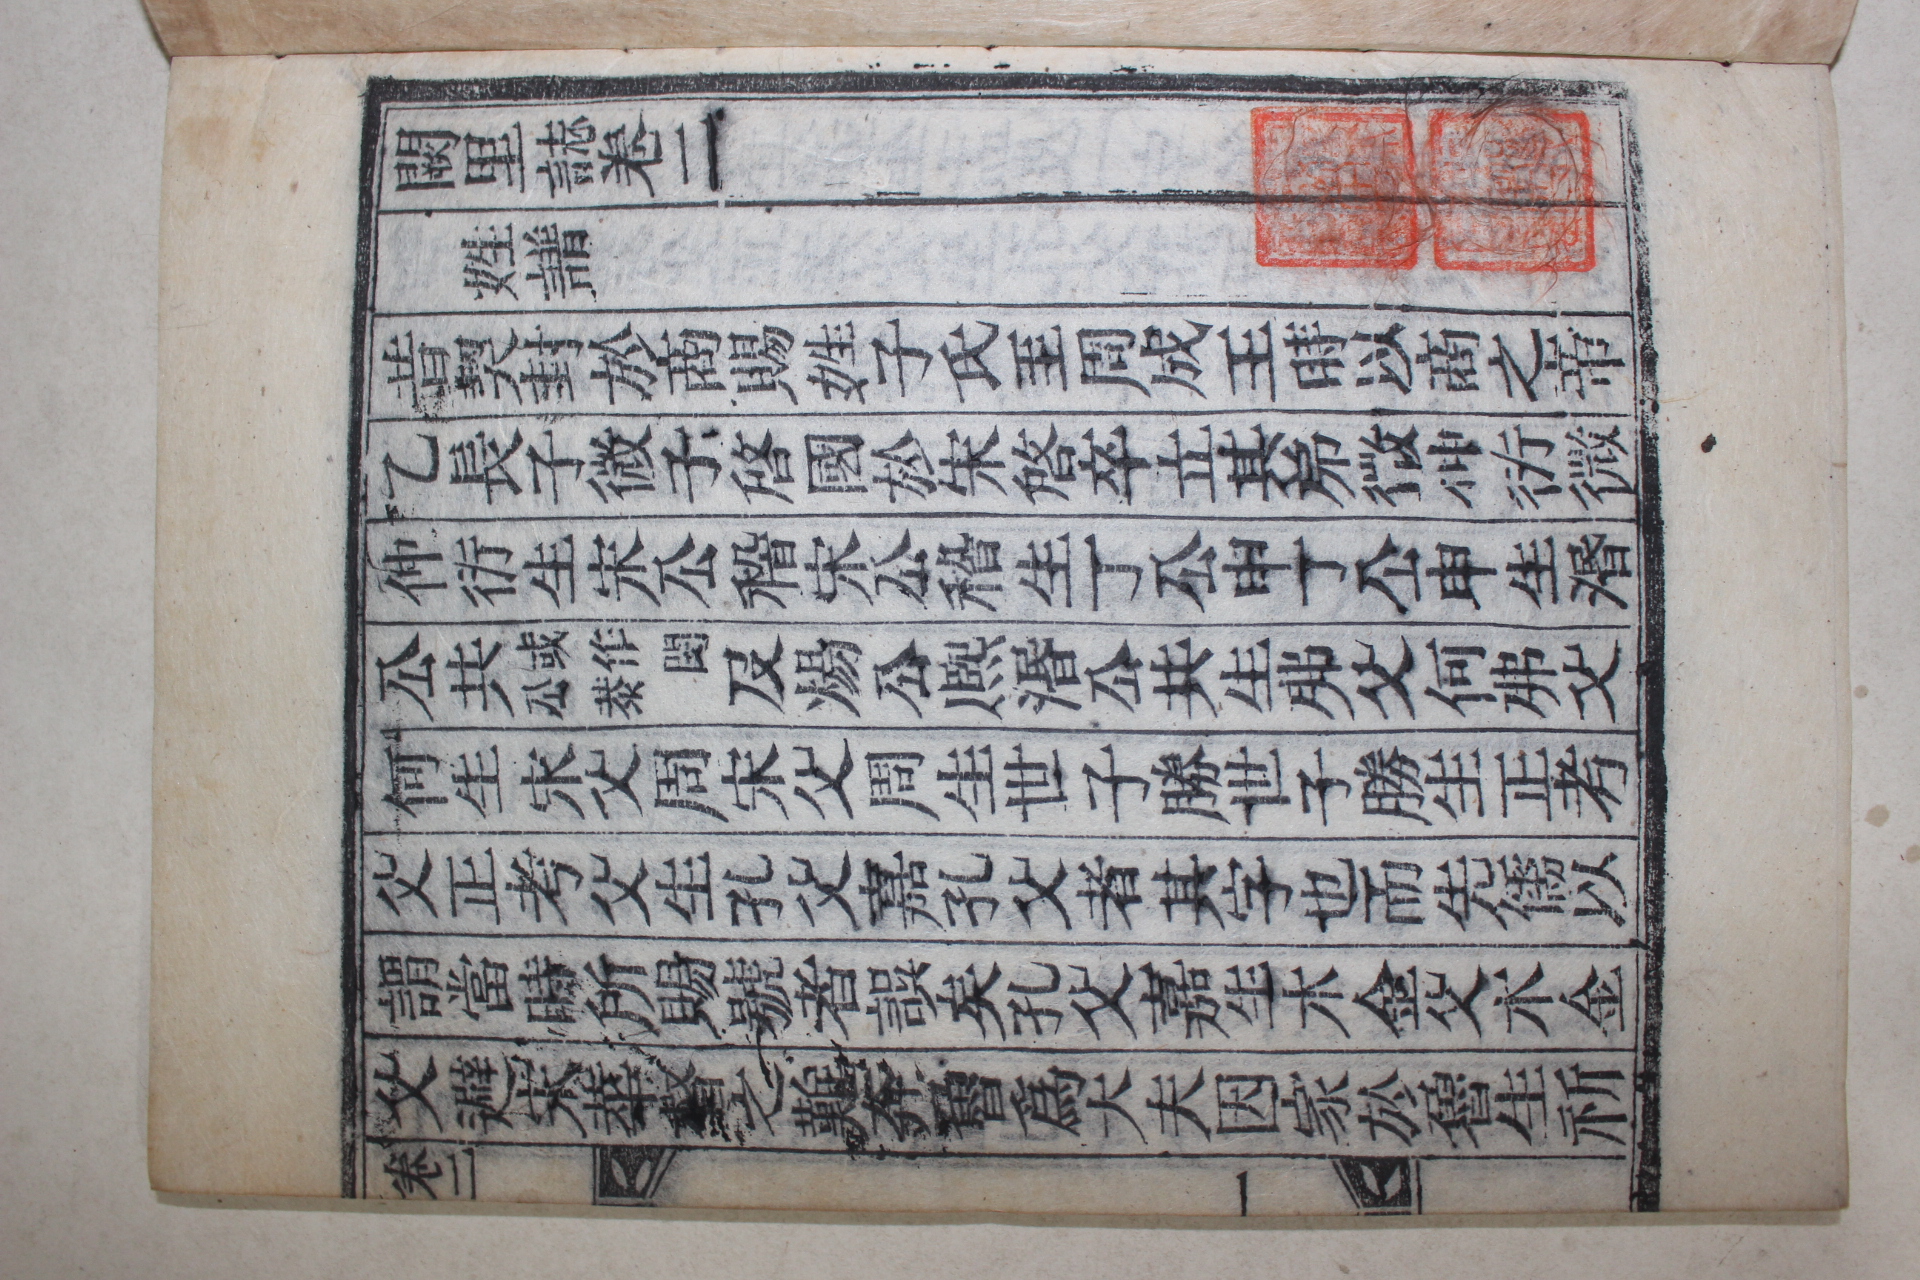 闕里誌卷二
姓譜
昔契封於商賜姓子氏至周成王時以商之帝
乙長子微子啓國於宋啓卒立其弟微仲衍微
仲衍生宋公稽宋公稽生丁公申丁公申生湣
公共或作閔公蒸及煬公熈湣公共生弗父何弗父
何生宋父周宋父周生世子勝世子勝生正考
父正考父生孔父嘉孔父者其字也而先儒以
謂當時所賜號者誤矣孔父嘉生木金父木金
父避宋華督之難奔魯爲大夫因家於魯生祈
卷二
一